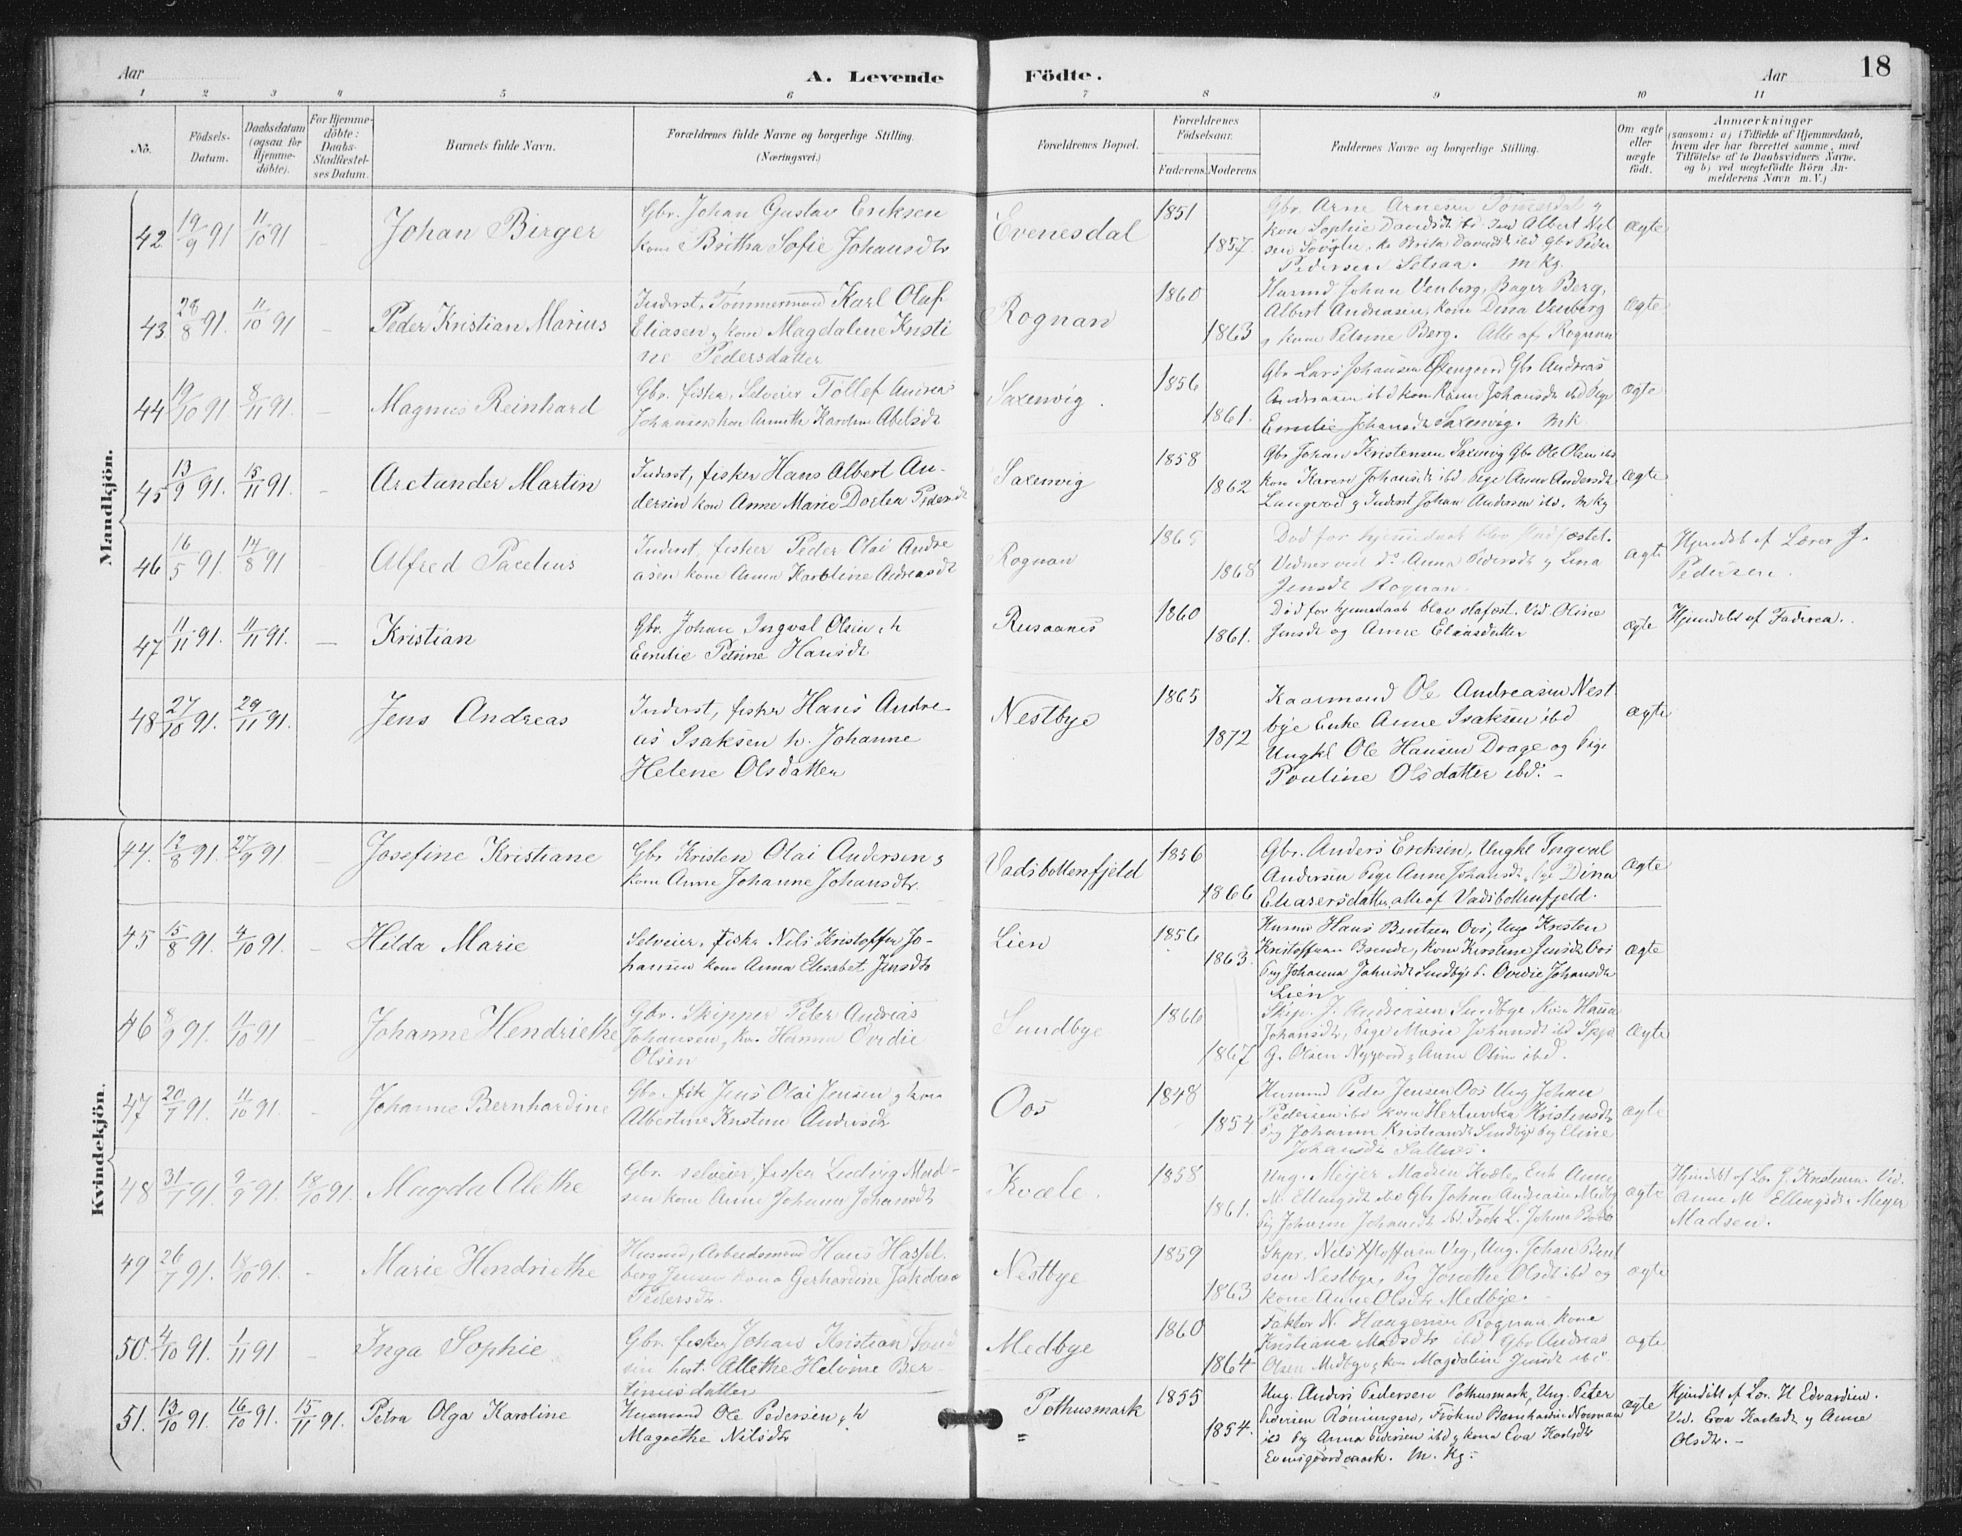 Aar
A. Levende
Födte.
Aar
18
1 2 3 4 5 6 7 8 9 10 11
No.
Födsels-
Datum.
Daabsdatum
(ogsaa for
Hjemme-
döbte).
For Hjemme-
döbte:
Daabs-
Stadfæstel-
ses Datum.
Barnets fulde Navn.
Forældrenes fulde Navne og borgerlige Stilling.
(Næringsvei.)
Forældrenes Bopæl.
Forældrenes
Födselsaar.
Faderens
Moderens
Faddernes Navne og borgerlige Stilling.
Om ægte
eller
uægte
født.
Anmærkninger
(saasom: a) i Tilfælde af Hjemmedaab,
hvem der har forrettet samme, med
Tilföielse af to Daabsvidners Navne.
og b) ved uægtefödte Börn An-
melderens Navn m. V.)
Mandkjön.
42 19/9 91 11/10 91 Johan Birger
Gbr. Johan Gustav Eriksen
kone Britha Sofie Johansdtr
Evenesdal
1851
1857.
Gbr. Arne Arnesen
kon Sophie Davidsdt ibd Ind Albert Nil
sen Brita Davidsdt ibd Gbr Peder
Pedersen Setsaa. m kg.
ægte
43 28/8 91. 11/10 91 Peder Kristian Marius
Inderst, Tømmermand Karl Olaf
Eliasen, kone Magdalene Kristi
ne Pedersdatter
Rognan
1860
1863
Husmd Johan Venberg, Bager Berg,
Albert Andreasen, kone Dina Venberg
y kone Petrine Berg. Alle af Rognan
ægte
44 19/10 91 8/11 91. Magnus Reinhard
Gbr. fisker, Selveier Tollef Andreas
Johansen kon Karoline Abelsdt
Saxenvig.
1856
1861.
Gbr Lars Johansen Gbr Andreas
Andreasen ibd kon Johansdt ibd Pige
Emilie Johansdt Saxenvig. mk
ægte
45 13/9 91. 15/11 91. Arctander Martin
Inderst, fisker Hans Albert An-
dersen kon Anne Marie Dortea Pedersdt
Saxenvig
1858
1862
Gbr Johan Kristensen Saxenvig Gbr Ole Olsen ibd
kon Karen Johansdt ibd Pige Anne Andersdt
y Inderst Johan Andersen ibd. mkg
ægte
46 16/5 91. 14/8 91 Alfred Pacelius
Inderst, fisker Peder Olai Andre
asen kone Anna Karoline Andreasdt
Rognan
1865
1868
Død før hjemmedaab blev stadfæstet.
Vidner ved do Anna Pedersdt y Lina
Jensdt Rognan.
ægte
Hjmdbt af Lærer J.
Pedersen.
47 11/11 91. 11/11 91. Kristian
Gbr. Johan Ingval Olsen, h
Emilie Petrine Hansdt
Rusaanes
1860
1861.
Død før hjemmedaab blev stafæst. Vid. Oline
Jensdt og Anne Eliasdatter
ægte
Hjemdbt af Faderen.
48 27/10 91. 29/11 91. Jens Andreas
Inderst, fisker Hans Andre-
as Isaksen h. Johanne
Helene Olsdatter
Nestbye
1865
1872
Kaarmand Ole Andreasen Nest
bye Enke Anne Isaksen ibd
Ungkl Ole Hansen Drage og Pige
Pouline Olsdatter ibd. -
ægte
Kvindekjön.
44. 12/8 91. 27/9 91. Josefine Kristiane
Gbr Kristen Olai Andersen y
kone Anne Johanne Johansdtr.
Vadsbottenfjeld
1856
1866
Gbr. Anders Eriksen, Ungkl Ingval
Andersen Pige Anne Johansdt, Pige Dina
Eliasersdatter, alle af Vadsbottenfjeld.
ægte
45 15/8 91. 4/10 91. Hilda Marie
Selveier, fisker Nils Kristoffer Jo-
hansen kone Anna Elisabet Jensdtr
Lien
1856
1863.
Husmd Hans Bentsen Oos, Ung Kristen
Kristoffersen kone Kirstine Jensdt Oos
Pig Johanna Jahnsdt Sundbye P. Ovidie Johansdt
Lien
ægte
46 8/9 91. 11/10 91 Johanne Hendriethe
Gbr. Skipper Peter Andreas
Johansen, kon Hanna Ovidie
Olsen
Sundbye
1866
1867
Skip. J. Andreasen Sundbye kon Hanna
Johansdtr, Pige Marie Johansdt ibd
G. Olsen Nygaard y Anne Olsen ibd.
ægte
47 20/7 91. 11/10 91. Johanne Bernhardine
Gbr. fisk Jens Olai Jensen y kone
Albertine Kristine Andrisdt
Oos
1848
1854
Husmd Peder Jensen Oos Ung Johan
Pedersen ibd kone Kristensdt
Pig Johanne Kristiansdt Sundbye Pig Eline
Johansdt Saltnes.
ægte
48 31/7 91. 9/9 91. 18/10 91. Magda Alethe
Gbr. selveier, fisker Ludvig Mad-
sen kone Anne Johanna Johansdt
Kvæle.
1858
1861.
Ung. Meyer Madsen Kvæle, Enk Anne
M. Ellingsdt ibd Gbr Johan Andreasen Medby
Pig Johanne Johansdt ibd L. Johnsen Bodø
ægte
Hjmdbt af Lær J. Kristensen Vid.
Anne M Ellingsdt Meyer
Madsen.
49 26/7 91. 18/10 91. Marie Hendriethe
Husmd, Arbeidsmand Hans Hassel
berg Jensen kona Gerhardine Jakobea
Pedersdtr.
Nestbye
1859
1863
Skpr. Nils Kstoffersen Ung. Johan Bent
sen Nestbye, Pig Olsdt ibd og
kone Anne Olsdtr Medbye.
ægte
50. 4/10 91. 1/11 91 Inga Sophie
Gbr. fisker Johan Kristian
hust. Allethe Helvine Ber-
tinusdatter
Medbye
1860
1864
Faktor N. Haagensen Rognan, kone
Kristiana Madsdtr ibd Gbr Andreas
Olsen Medbye y kon Magdaline Jensdt ibd
ægte
51. 13/10 91. 16/10 91. 15/11 91. Petra Olga Karoline
Husmand Ole Pedersen, h
Magrethe Nilsdtr
Pothusmark
"
1855
1854.
Ung. Anders Pedersen Pothusmark, Ung. Peter
Pedersen Frøken Bernhardine Norman
ibd Pig Anna Pedersen ibd y kona Eva Karlsdtr
Evensgaardsmark. M. kg.
ægte
Hjmdbt af Lær. H Edvardsen.
Vid. Eva Karlsdt y Anne
Olsdtr. -